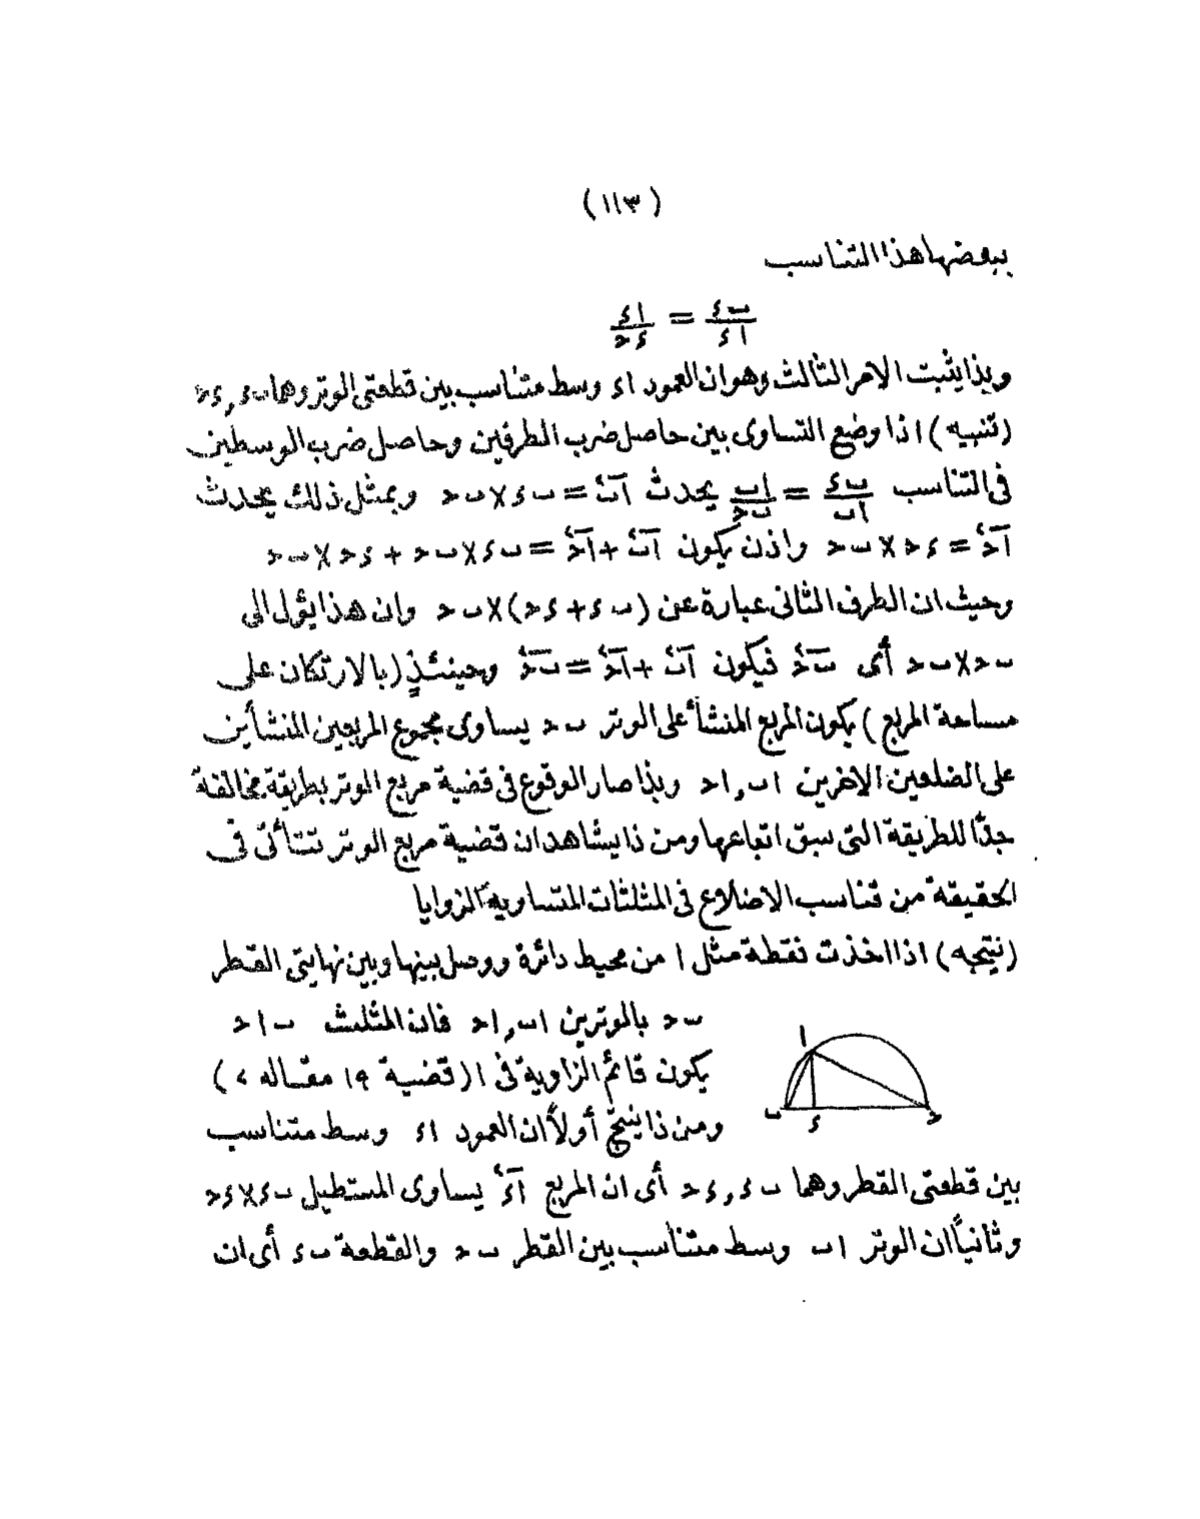 (١١٣)
ببعضها هذا التناسب
ٮء/اء = اء/ءح
وبذا يثبت الامر الثالث وهو ان العمود اء وسط متناسب بين قطعتى الوتر وهما ٮء,ءح
(تنبيه) اذا وضع التساوى بين حاصل ضرب الطرفين وحاصل ضرب الوسطين
فى التناسب ٮء/اٮ = اٮ/ٮح يحدث اٮ٢ = ٮء×ٮح وبمثل ذلك يحدث
اح٢ = ءح×ٮح واذن يكون اٮ٢ + اح٢ = ٮء×ٮح + ءح×ٮح
وحيث ان الطرف الثانى عبارة عن (ٮء + ءح)×ٮح وان هذا يؤل الى
ٮح×ٮح أى ٮح٢ فيكون اٮ٢ + اح٢ = ٮح٢ وحينئذٍ (بالارتكان على
مساحة المربع) يكون المربع المنشأ على الوتر ٮح يساوى مجموع المربعين المنشأين
على الضلعين الاخرين اٮ,اح وبذا صار الوقوع فى قضية مربع الوتر بطريقة مخالفة
جدّا للطريقة التى سبق اتباعها ومن ذا يشاهد ان قضية مربع الوتر تتأتى فى
الحقيقة من تناسب الاضلاع فى المثلثات المتساوية الزوايا
(نتيجه) اذا اخذت نقطة مثل ا من محيط دائرة ووصل بينها وبين نهايتى القطر
ٮح بالوترين اٮ,اح فان المثلث ٮاح
يكون قائم الزاوية فى ا (قضية ١٩ مقاله ٢)
ومن ذا ينتج أولاً ان العمود اء وسط متناسب
ا
ٮ ء ح
بين قطعتى القطر وهما ٮء,ءح أى ان المربع اء٢ يساوى المستطيل ٮء×ءح
وثانياً ان الوتر اٮ وسط متناسب بين القطر ٮح والقطعة ٮء أى ان